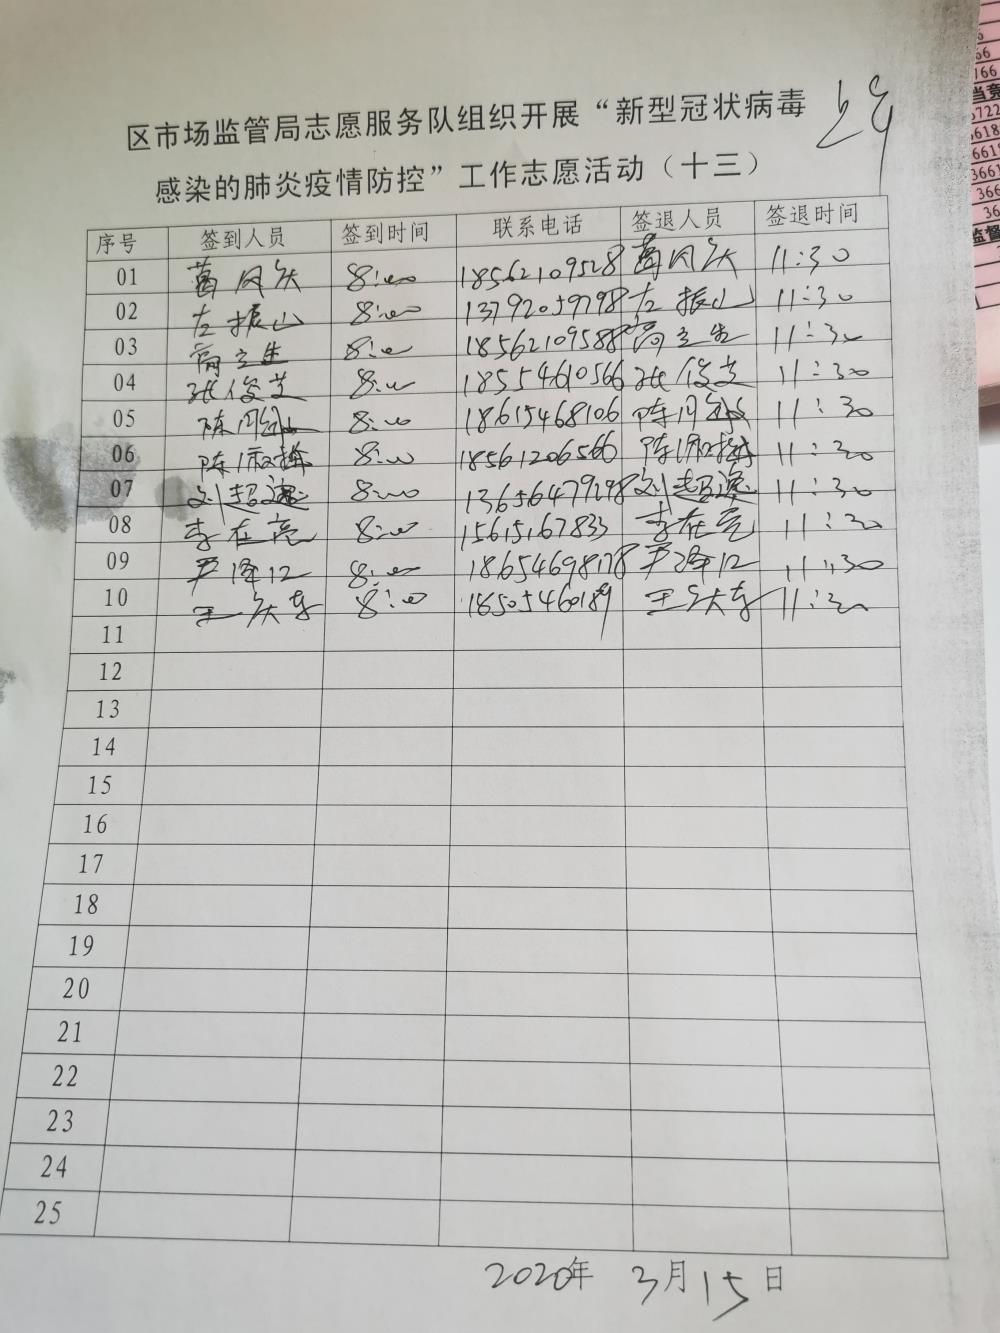 区市场监管局志愿服务队组织开展“新型冠状病毒
感染的肺炎疫情防控”工作志愿活动（十三） 上午
序号 签到人员 签到时间 联系电话 签退人员 签退时间
01 8:00 18562109528 11:30
02 左振山 8:00 13792059798 左振山 11:30
03 高立生 8:00 18562109588 高立生 11:30
04 张俊芝 8:00 18554610566 张俊芝 11:30
05 8:00 18615468106 11:30
06 8:00 18561206566 11:30
07 刘超逸 8:00 13656479298 刘超逸 11:30
08 李在亮 8:00 15615167833 李在亮 11:30
09 尹泽江 8:00 18654698178 尹泽江 11:30
10 8:00 18505460189 11:30
11
12
13
14
15
16
17
18
19
20
21
22
23
24
25
2020年 3月15日